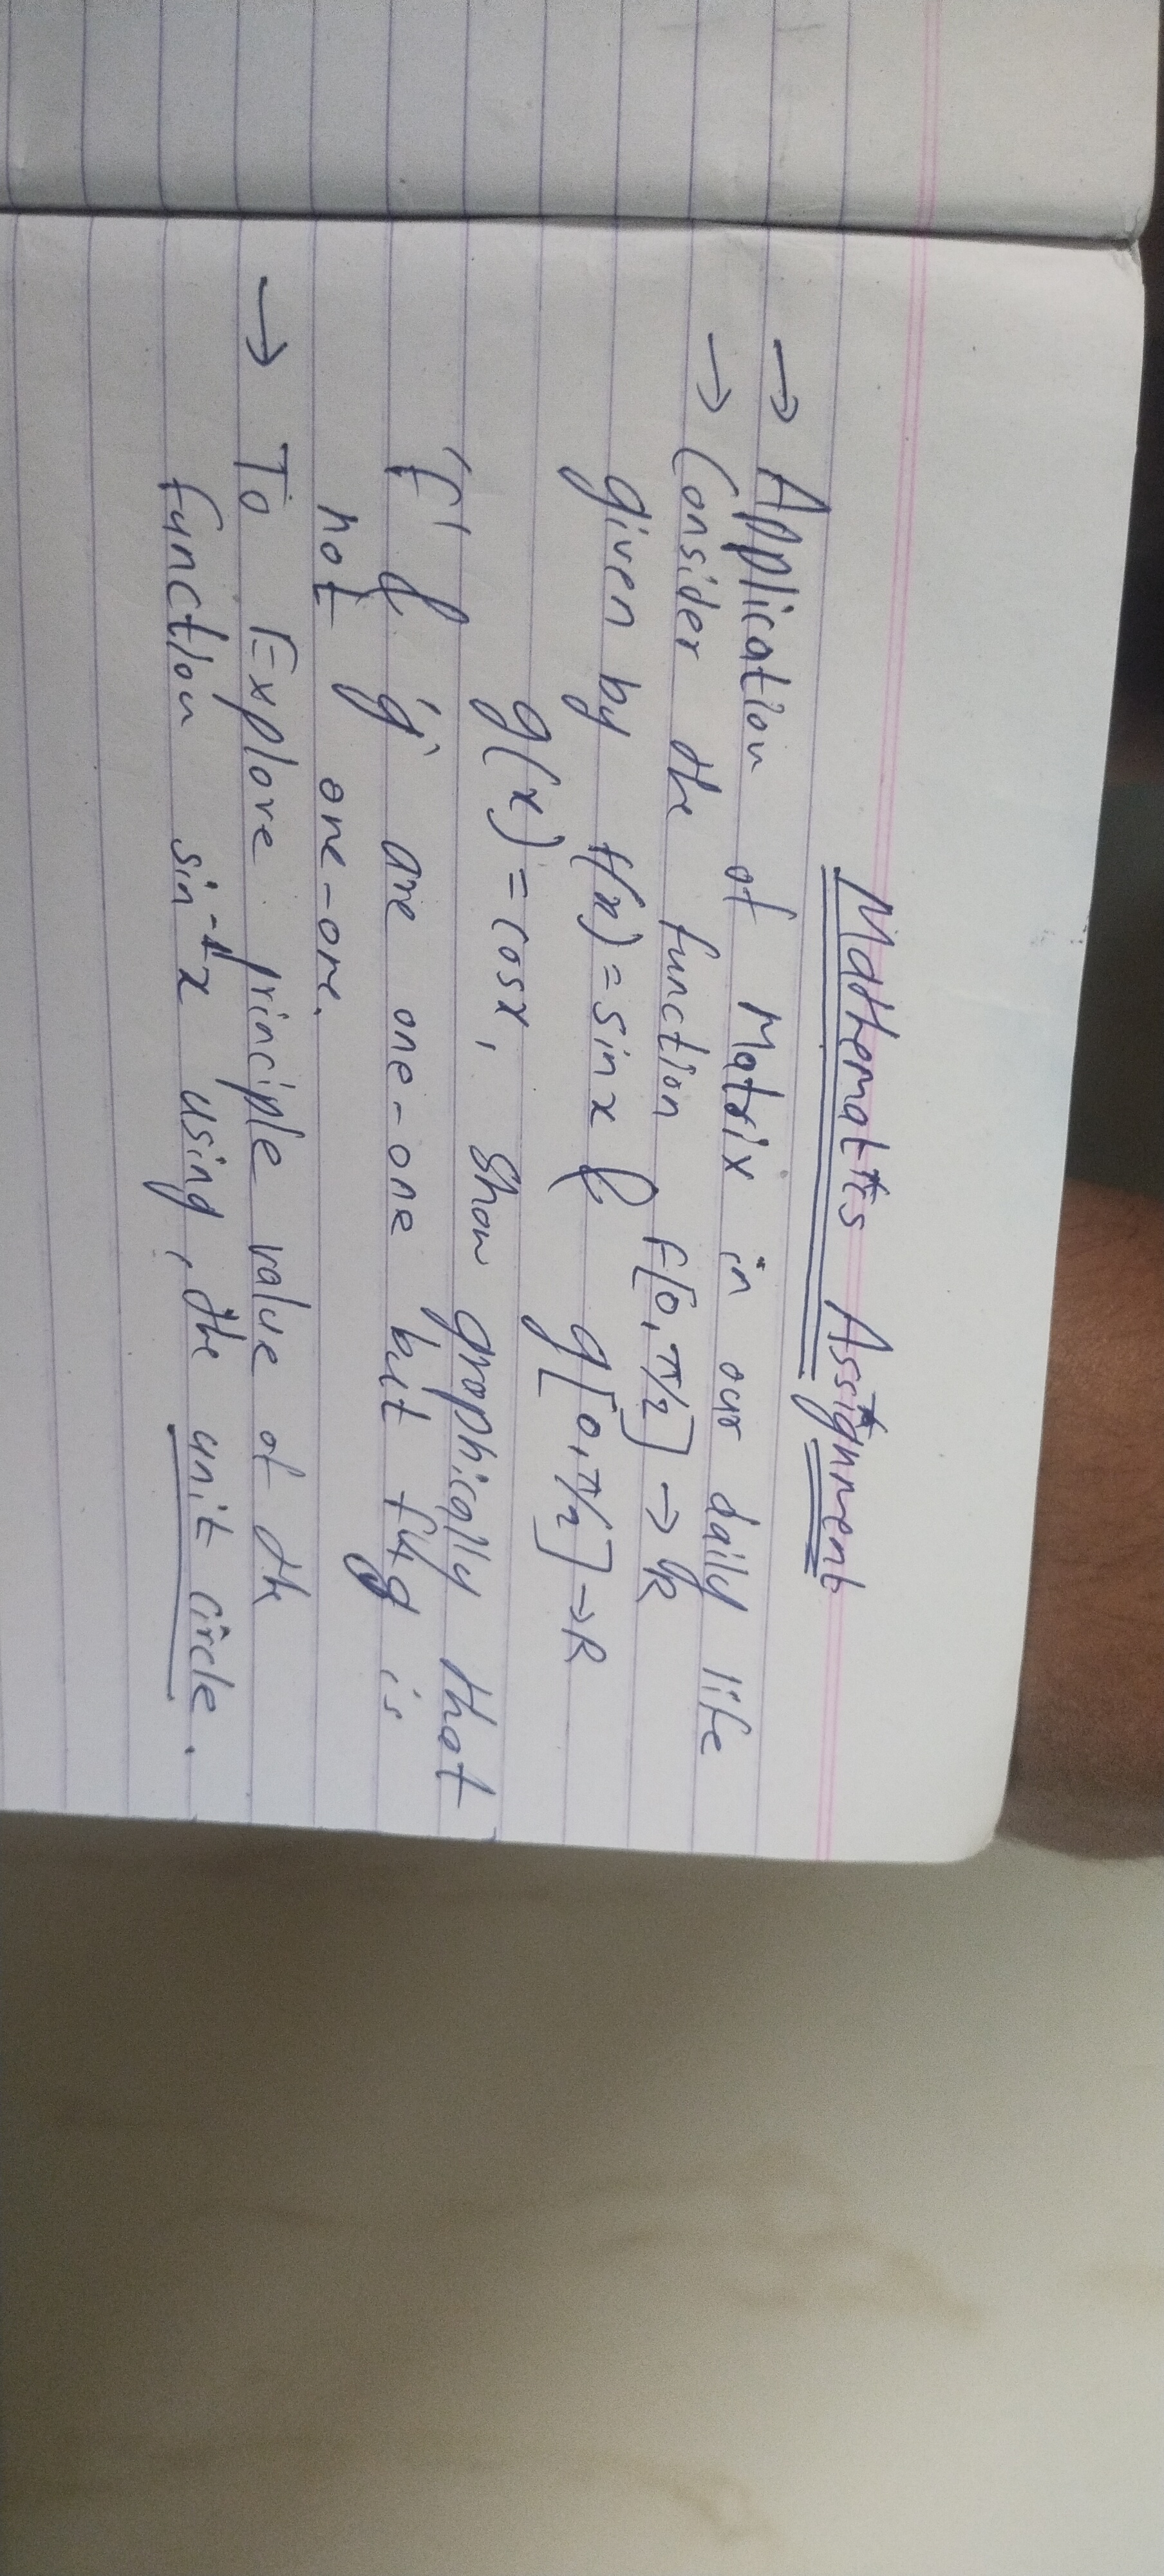 Mathematics Assignment
→ Application of Matrix in our daily life
→ Consider the function F[0, π/2] → R
given by f(x) = sin x & g[0, π/2] → R
g(x) = cosx, Show graphically that
'F' & 'g' are one-one but f+g is
not one-one.
→ To Explore principle value of the
function sin⁻¹x using, the unit circle.